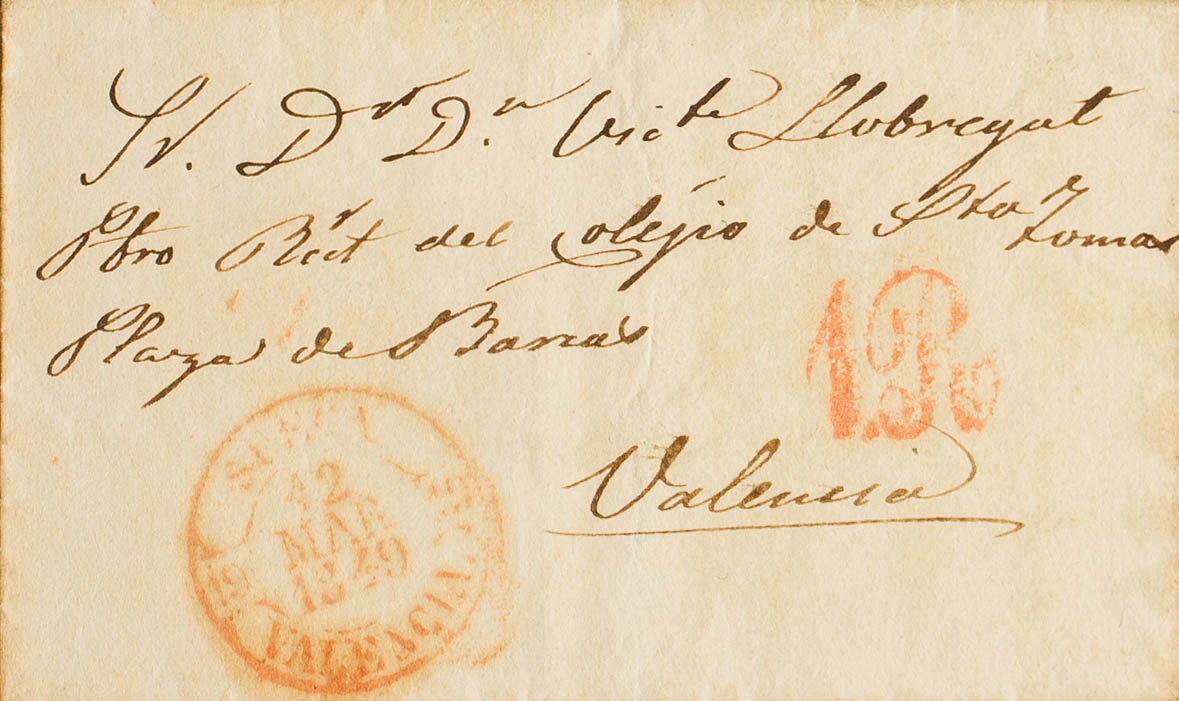 Sr. Dr. Dn. Victe Llobregat
Pbro Rect del colejio de Sto Tomas
Plaza de Barcas
1R
Valencia
12
MAR
1849
VALENCIA.